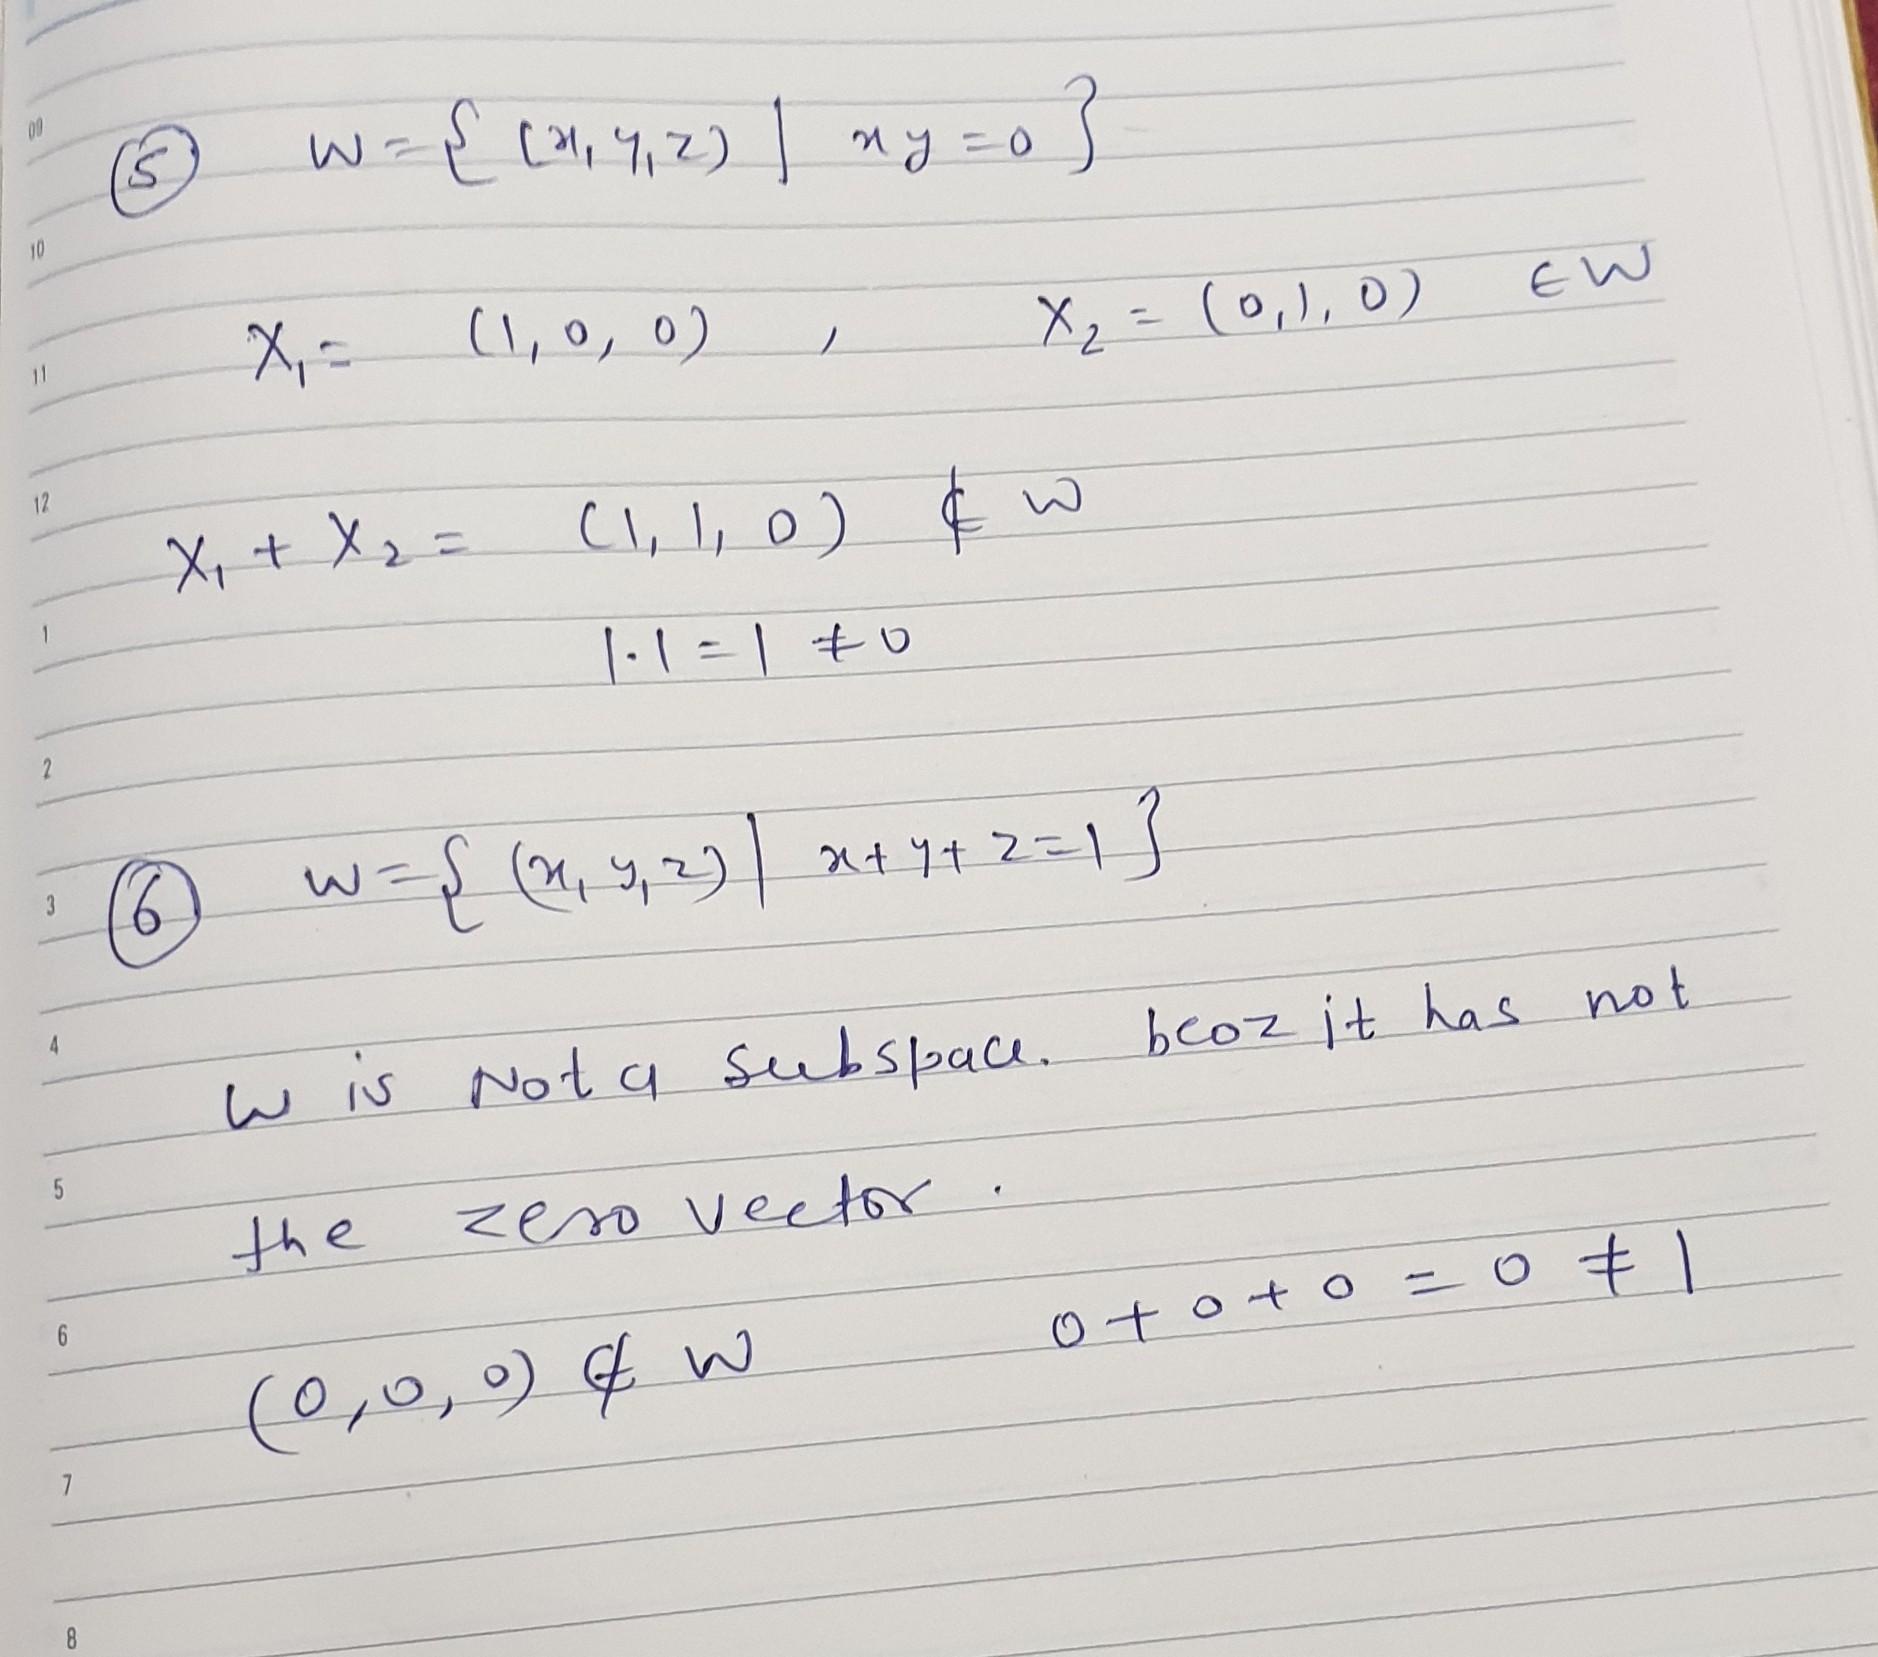 09
⑤ W = { (x, y, z) | xy = 0 }
10
X₁ = (1, 0, 0) , X₂ = (0, 1, 0) ∈ W
11
12
X₁ + X₂ = (1, 1, 0) ∉ W
1
1·1 = 1 ≠ 0
2
3
⑥ W = { (x, y, z) | x + y + z = 1 }
4
W is Not a subspace. bcoz it has not
5
the zero vector.
6
(0, 0, 0) ∉ W 0 + 0 + 0 = 0 ≠ 1
7
8